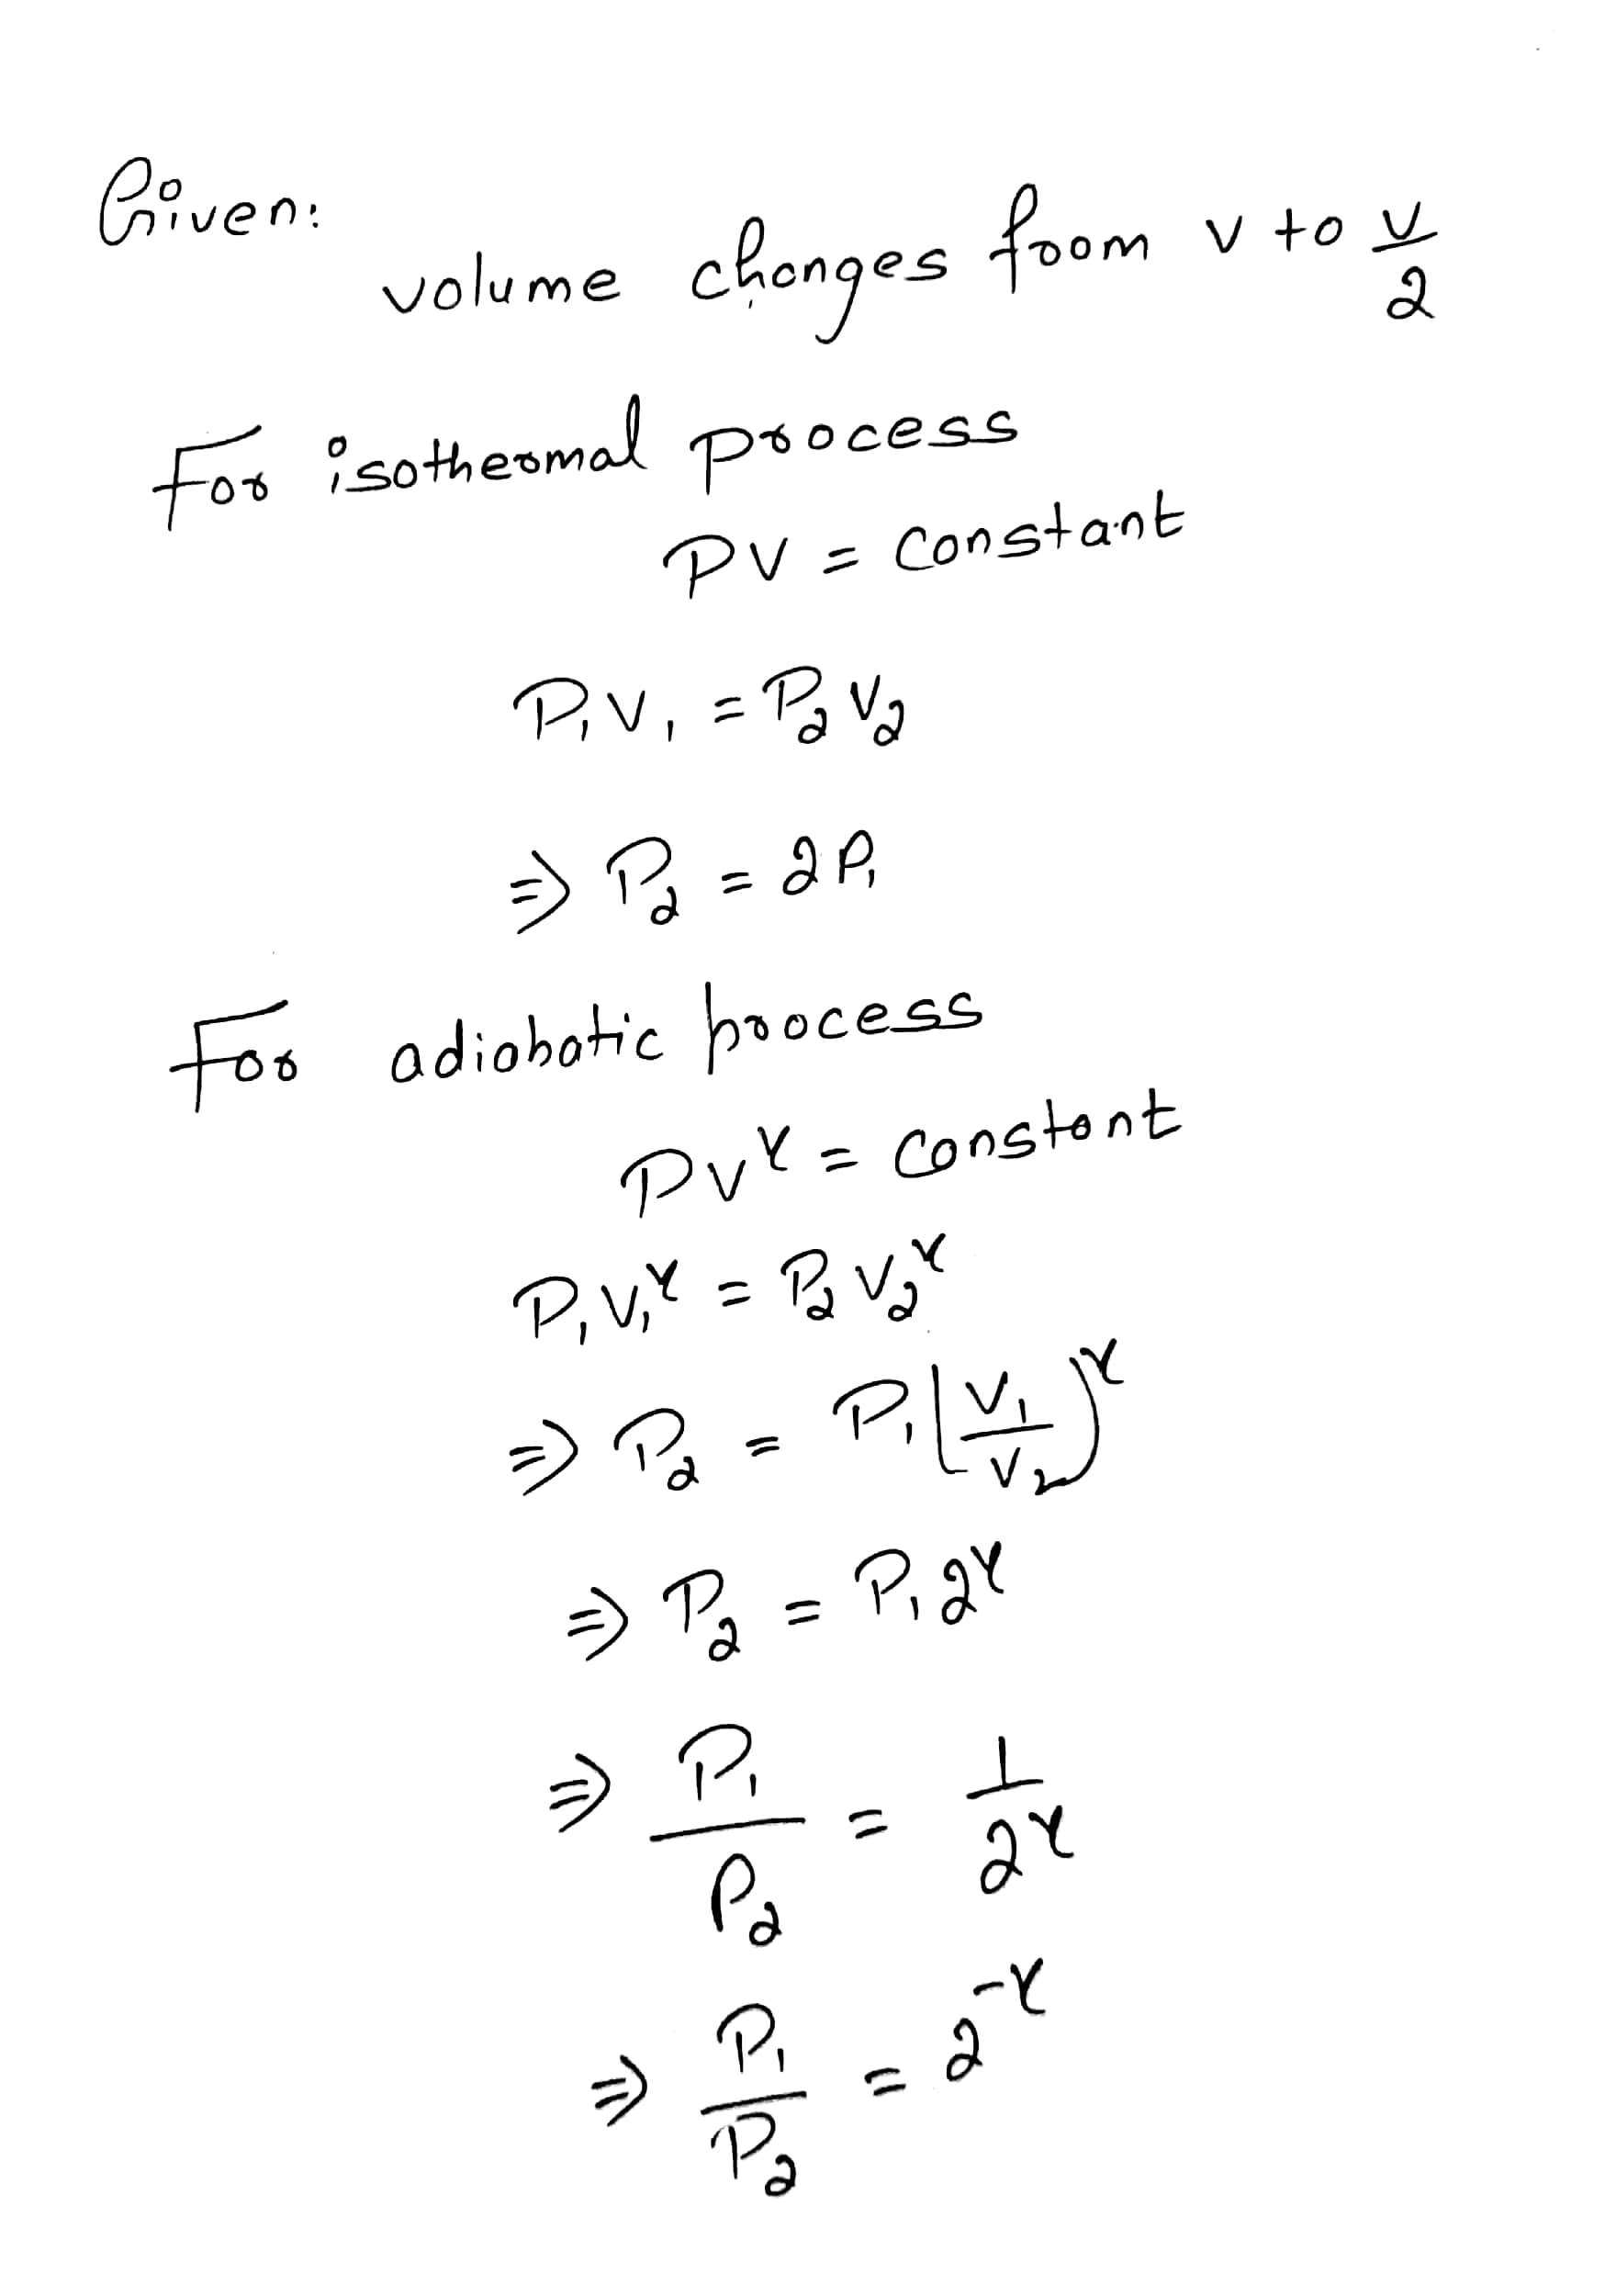 Given:
volume changes from V to V/2
For isothermal process
PV = constant
P₁V₁ = P₂V₂
⇒ P₂ = 2P₁
For adiabatic process
PV^γ = constant
P₁V₁^γ = P₂V₂^γ
⇒ P₂ = P₁(V₁/V₂)^γ
⇒ P₂ = P₁2^γ
⇒ P₁/P₂ = 1/2^γ
⇒ P₁/P₂ = 2^-γ